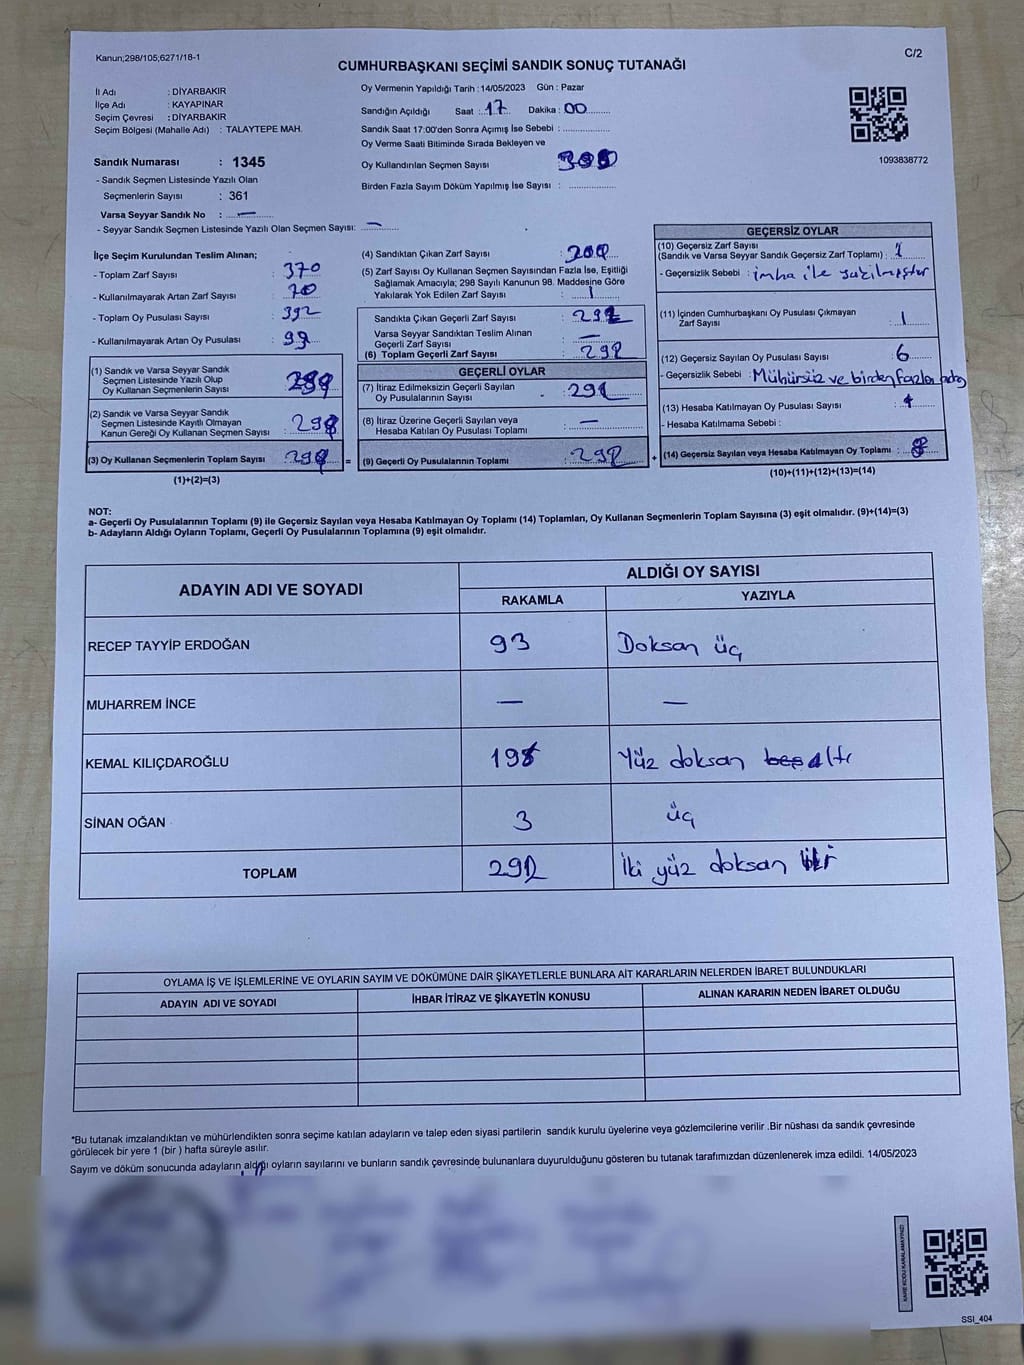 Kanun;298/105;6271/18-1
C/2
CUMHURBAŞKANI SEÇİMİ SANDIK SONUÇ TUTANAĞI
İl Adı : DİYARBAKIR
İlçe Adı : KAYAPINAR
Seçim Çevresi : DİYARBAKIR
Seçim Bölgesi (Mahalle Adı) : TALAYTEPE MAH.
Sandık Numarası : 1345
- Sandık Seçmen Listesinde Yazılı Olan
Seçmenlerin Sayısı : 361
Varsa Seyyar Sandık No : —
- Seyyar Sandık Seçmen Listesinde Yazılı Olan Seçmen Sayısı: —
Oy Vermenin Yapıldığı Tarih : 14/05/2023 Gün : Pazar
Sandığın Açıldığı Saat : 17 Dakika : 00
Sandık Saat 17:00'den Sonra Açımış İse Sebebi :
Oy Verme Saati Bitiminde Sırada Bekleyen ve
Oy Kullandırılan Seçmen Sayısı
Birden Fazla Sayım Döküm Yapılmış İse Sayısı :
1093838772
İlçe Seçim Kurulundan Teslim Alınan;
- Toplam Zarf Sayısı : 370
- Kullanılmayarak Artan Zarf Sayısı : 70
- Toplam Oy Pusulası Sayısı : 392
- Kullanılmayarak Artan Oy Pusulası : 92
(1) Sandık ve Varsa Seyyar Sandık
Seçmen Listesinde Yazılı Olup
Oy Kullanan Seçmenlerin Sayısı :
(2) Sandık ve Varsa Seyyar Sandık
Seçmen Listesinde Kayıtlı Olmayan
Kanun Gereği Oy Kullanan Seçmen Sayısı :
(3) Oy Kullanan Seçmenlerin Toplam Sayısı : =
(1)+(2)=(3)
(4) Sandıktan Çıkan Zarf Sayısı :
(5) Zarf Sayısı Oy Kullanan Seçmen Sayısından Fazla İse, Eşitliği
Sağlamak Amacıyla; 298 Sayılı Kanunun 98. Maddesine Göre
Yakılarak Yok Edilen Zarf Sayısı : 1
Sandıkta Çıkan Geçerli Zarf Sayısı : 292
Varsa Seyyar Sandıktan Teslim Alınan
Geçerli Zarf Sayısı : —
(6) Toplam Geçerli Zarf Sayısı : 292
GEÇERLİ OYLAR
(7) İtiraz Edilmeksizin Geçerli Sayılan
Oy Pusulalarının Sayısı : 292
(8) İtiraz Üzerine Geçerli Sayılan veya
Hesaba Katılan Oy Pusulası Toplamı : —
(9) Geçerli Oy Pusulalarının Toplamı : 292 +
GEÇERSİZ OYLAR
(10) Geçersiz Zarf Sayısı
(Sandık ve Varsa Seyyar Sandık Geçersiz Zarf Toplamı) : 1
- Geçersizlik Sebebi : imha ile yakılmıştır
(11) İçinden Cumhurbaşkanı Oy Pusulası Çıkmayan
Zarf Sayısı : 1
(12) Geçersiz Sayılan Oy Pusulası Sayısı : 6
- Geçersizlik Sebebi : Mühürsüz ve birden fazla
(13) Hesaba Katılmayan Oy Pusulası Sayısı :
- Hesaba Katılmama Sebebi :
(14) Geçersiz Sayılan veya Hesaba Katılmayan Oy Toplamı : 8
(10)+(11)+(12)+(13)=(14)
NOT:
a- Geçerli Oy Pusulalarının Toplamı (9) ile Geçersiz Sayılan veya Hesaba Katılmayan Oy Toplamı (14) Toplamları, Oy Kullanan Seçmenlerin Toplam Sayısına (3) eşit olmalıdır. (9)+(14)=(3)
b- Adayların Aldığı Oyların Toplamı, Geçerli Oy Pusulalarının Toplamına (9) eşit olmalıdır.
ADAYIN ADI VE SOYADI
ALDIĞI OY SAYISI
RAKAMLA YAZIYLA
RECEP TAYYİP ERDOĞAN 93 Doksan üç
MUHARREM İNCE — —
KEMAL KILIÇDAROĞLU 196 Yüz doksan beş altı
SİNAN OĞAN 3 üç
TOPLAM 292 İki yüz doksan iki
OYLAMA İŞ VE İŞLEMLERİNE VE OYLARIN SAYIM VE DÖKÜMÜNE DAİR ŞİKAYETLERLE BUNLARA AİT KARARLARIN NELERDEN İBARET BULUNDUKLARI
ADAYIN ADI VE SOYADI İHBAR İTİRAZ VE ŞİKAYETİN KONUSU ALINAN KARARIN NEDEN İBARET OLDUĞU
*Bu tutanak imzalandıktan ve mühürlendikten sonra seçime katılan adayların ve talep eden siyasi partilerin sandık kurulu üyelerine veya gözlemcilerine verilir .Bir nüshası da sandık çevresinde
görülecek bir yere 1 (bir ) hafta süreyle asılır.
Sayım ve döküm sonucunda adayların aldığı oyların sayılarını ve bunların sandık çevresinde bulunanlara duyurulduğunu gösteren bu tutanak tarafımızdan düzenlenerek imza edildi. 14/05/2023
KARE KODU KARALAMAYINIZ!
SSI_404